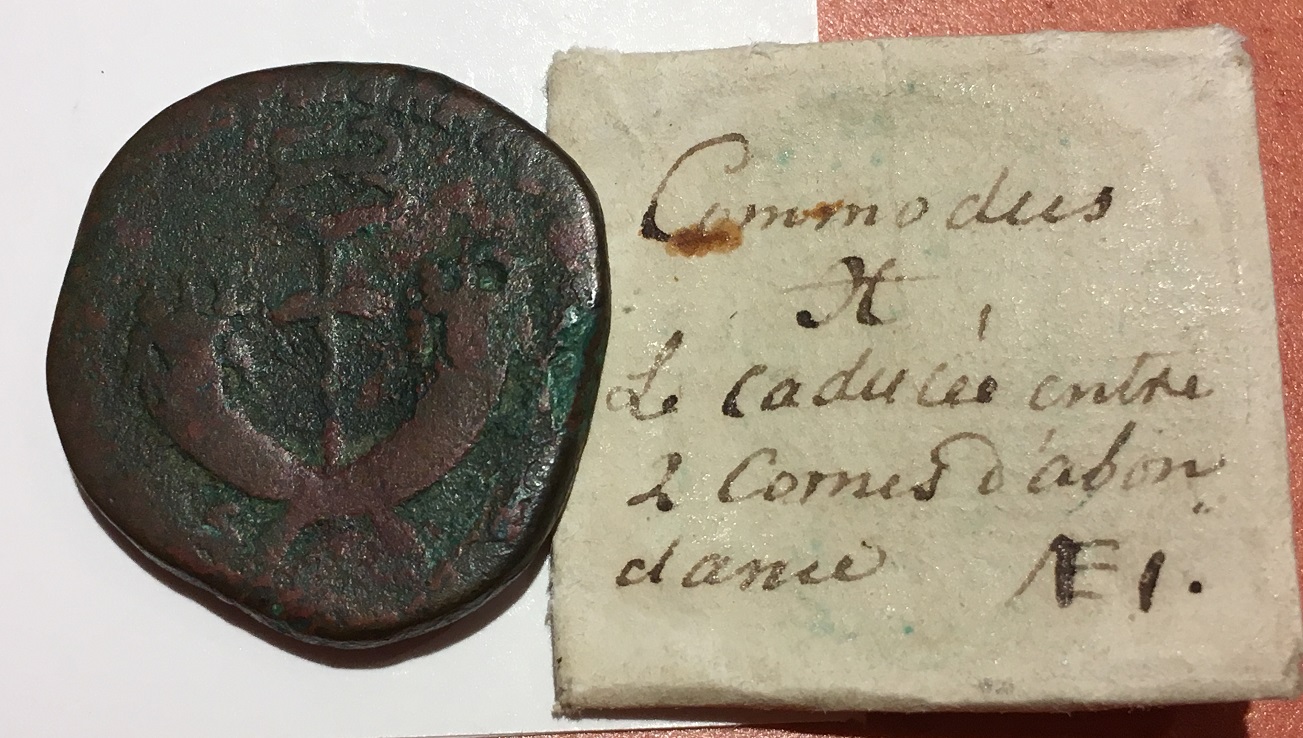 Commodus
Le caducée entre
2 Cornes d'abon„
dance Æ 1.